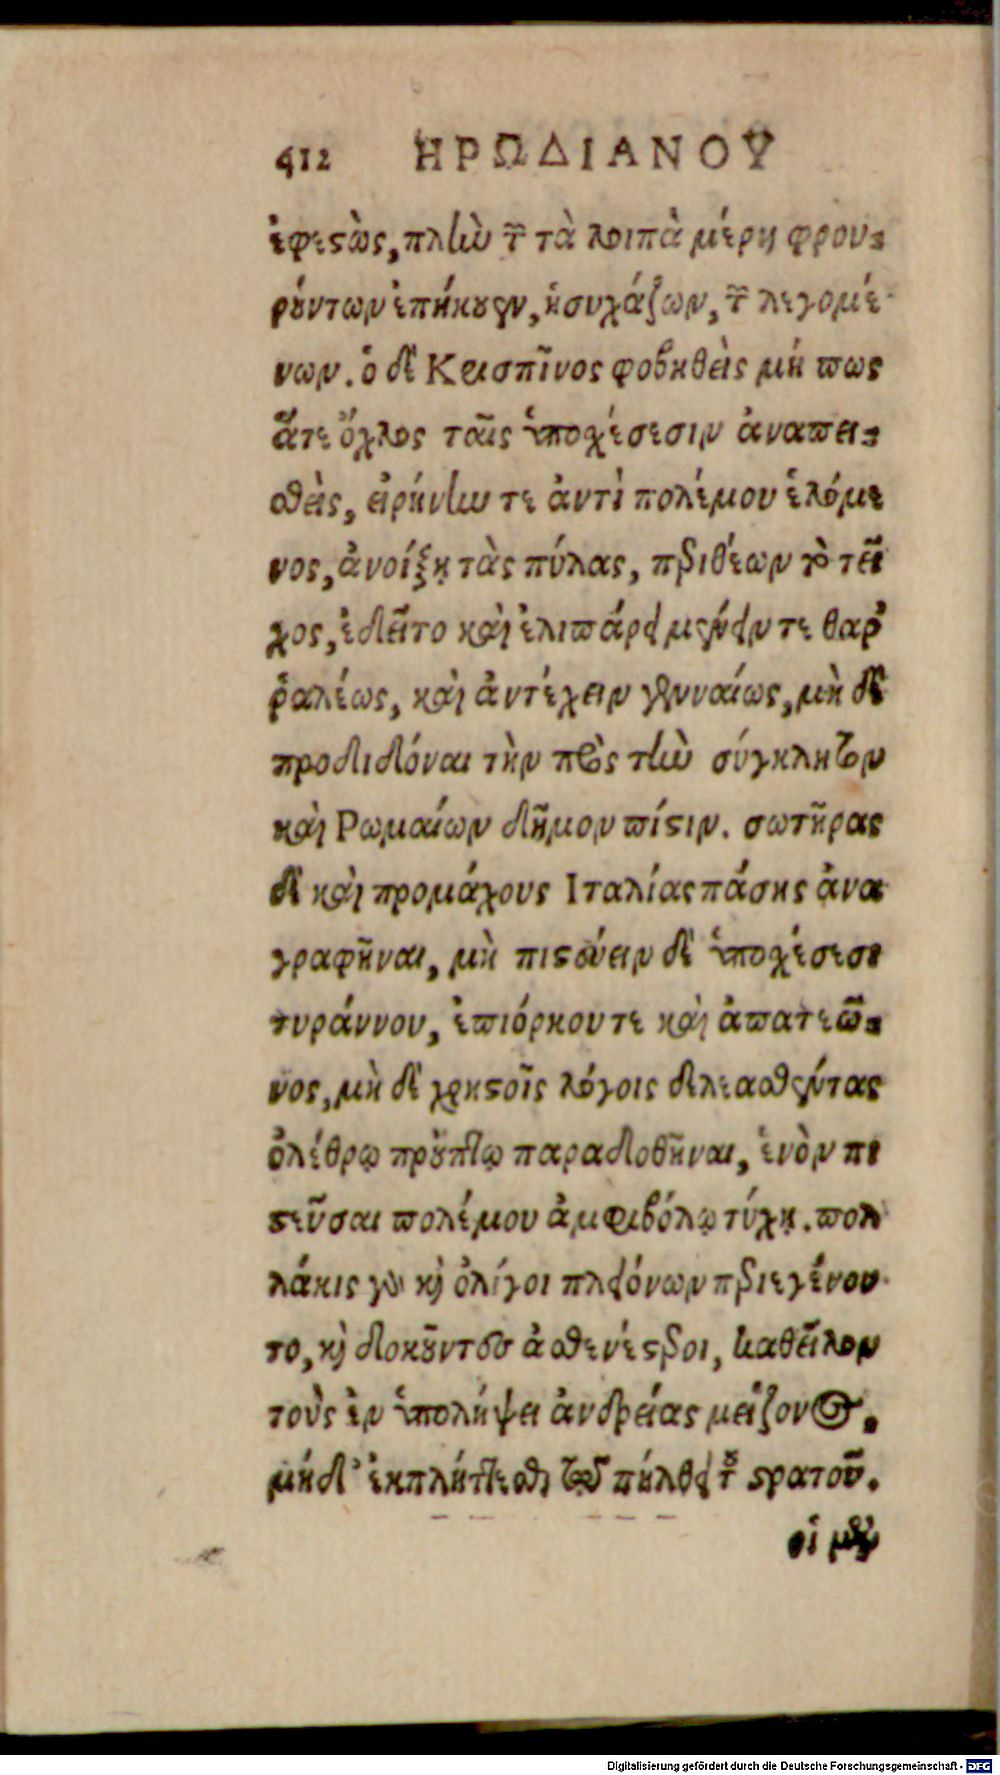 412 ΗΡΩΔΙΑΝΟΥ
ἐφεστὼς, πλὴν τῶν τὰ λοιπὰ μέρη φρου-
ρούντων ἐπήκουσεν, ἡσυχάζων, τῶν λεγομέ-
νων. ὁ δὲ Κρισπῖνος φοβηθεὶς μή πως
ἅτε ὄχλος ταῖς ὑποχέσεσιν ἀναπει-
σθεὶς, εἰρήνην τε ἀντὶ πολέμου ἑλόμε
νος, ἀνοίξῃ τὰς πύλας, περιθέων τὸ τεῖ
χος, ἐδεῖτο καὶ ἐλιπάρει μένειν τε θαρ
ῥαλέως, καὶ ἀντέχειν γενναίως, μὴ δὲ
προδιδόναι τὴν πρὸς τὴν σύγκλητον
καὶ Ρωμαίων δῆμον πίστιν. σωτῆρας
δὲ καὶ προμάχους Ιταλίας πάσης ἀνα
γραφῆναι, μὴ πιστεύειν δὲ ὑποχέσεσι
τυράννου, ἐπιόρκου τε καὶ ἀπατεῶ-
νος, μὴ δὲ χρηστοῖς λόγοις δελεασθέντας
ὀλέθρῳ προὔπτῳ παραδοθῆναι, ἐνὸν πι
στεῦσαι πολέμου ἀμφιβόλῳ τύχῃ. πολ
λάκις γὰρ καὶ ὀλίγοι πλειόνων περιεγένον
το, καὶ δοκοῦντες ἀσθενέστεροι, καθεῖλον
τοὺς ἐν ὑπολήψει ἀνδρείας μείζονος.
μήδ' ἐκπλήττεσθαι τῷ πλήθει τοῦ στρατοῦ.
οἱ μὲν
Digitalisierung gefördert durch die Deutsche Forschungsgemeinschaft - DFG